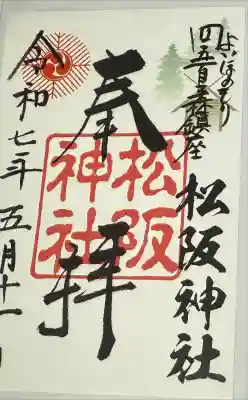 よいほのもり
四五百森鎮座
松阪神社
奉拝
松阪
神社
令和七年五月十一日